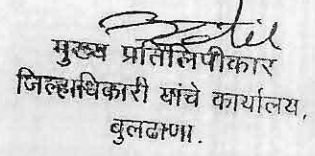 मुख्य प्रतिलिपीकार
जिल्हाधिकारी यांचे कार्यालय,
बुलढाणा.